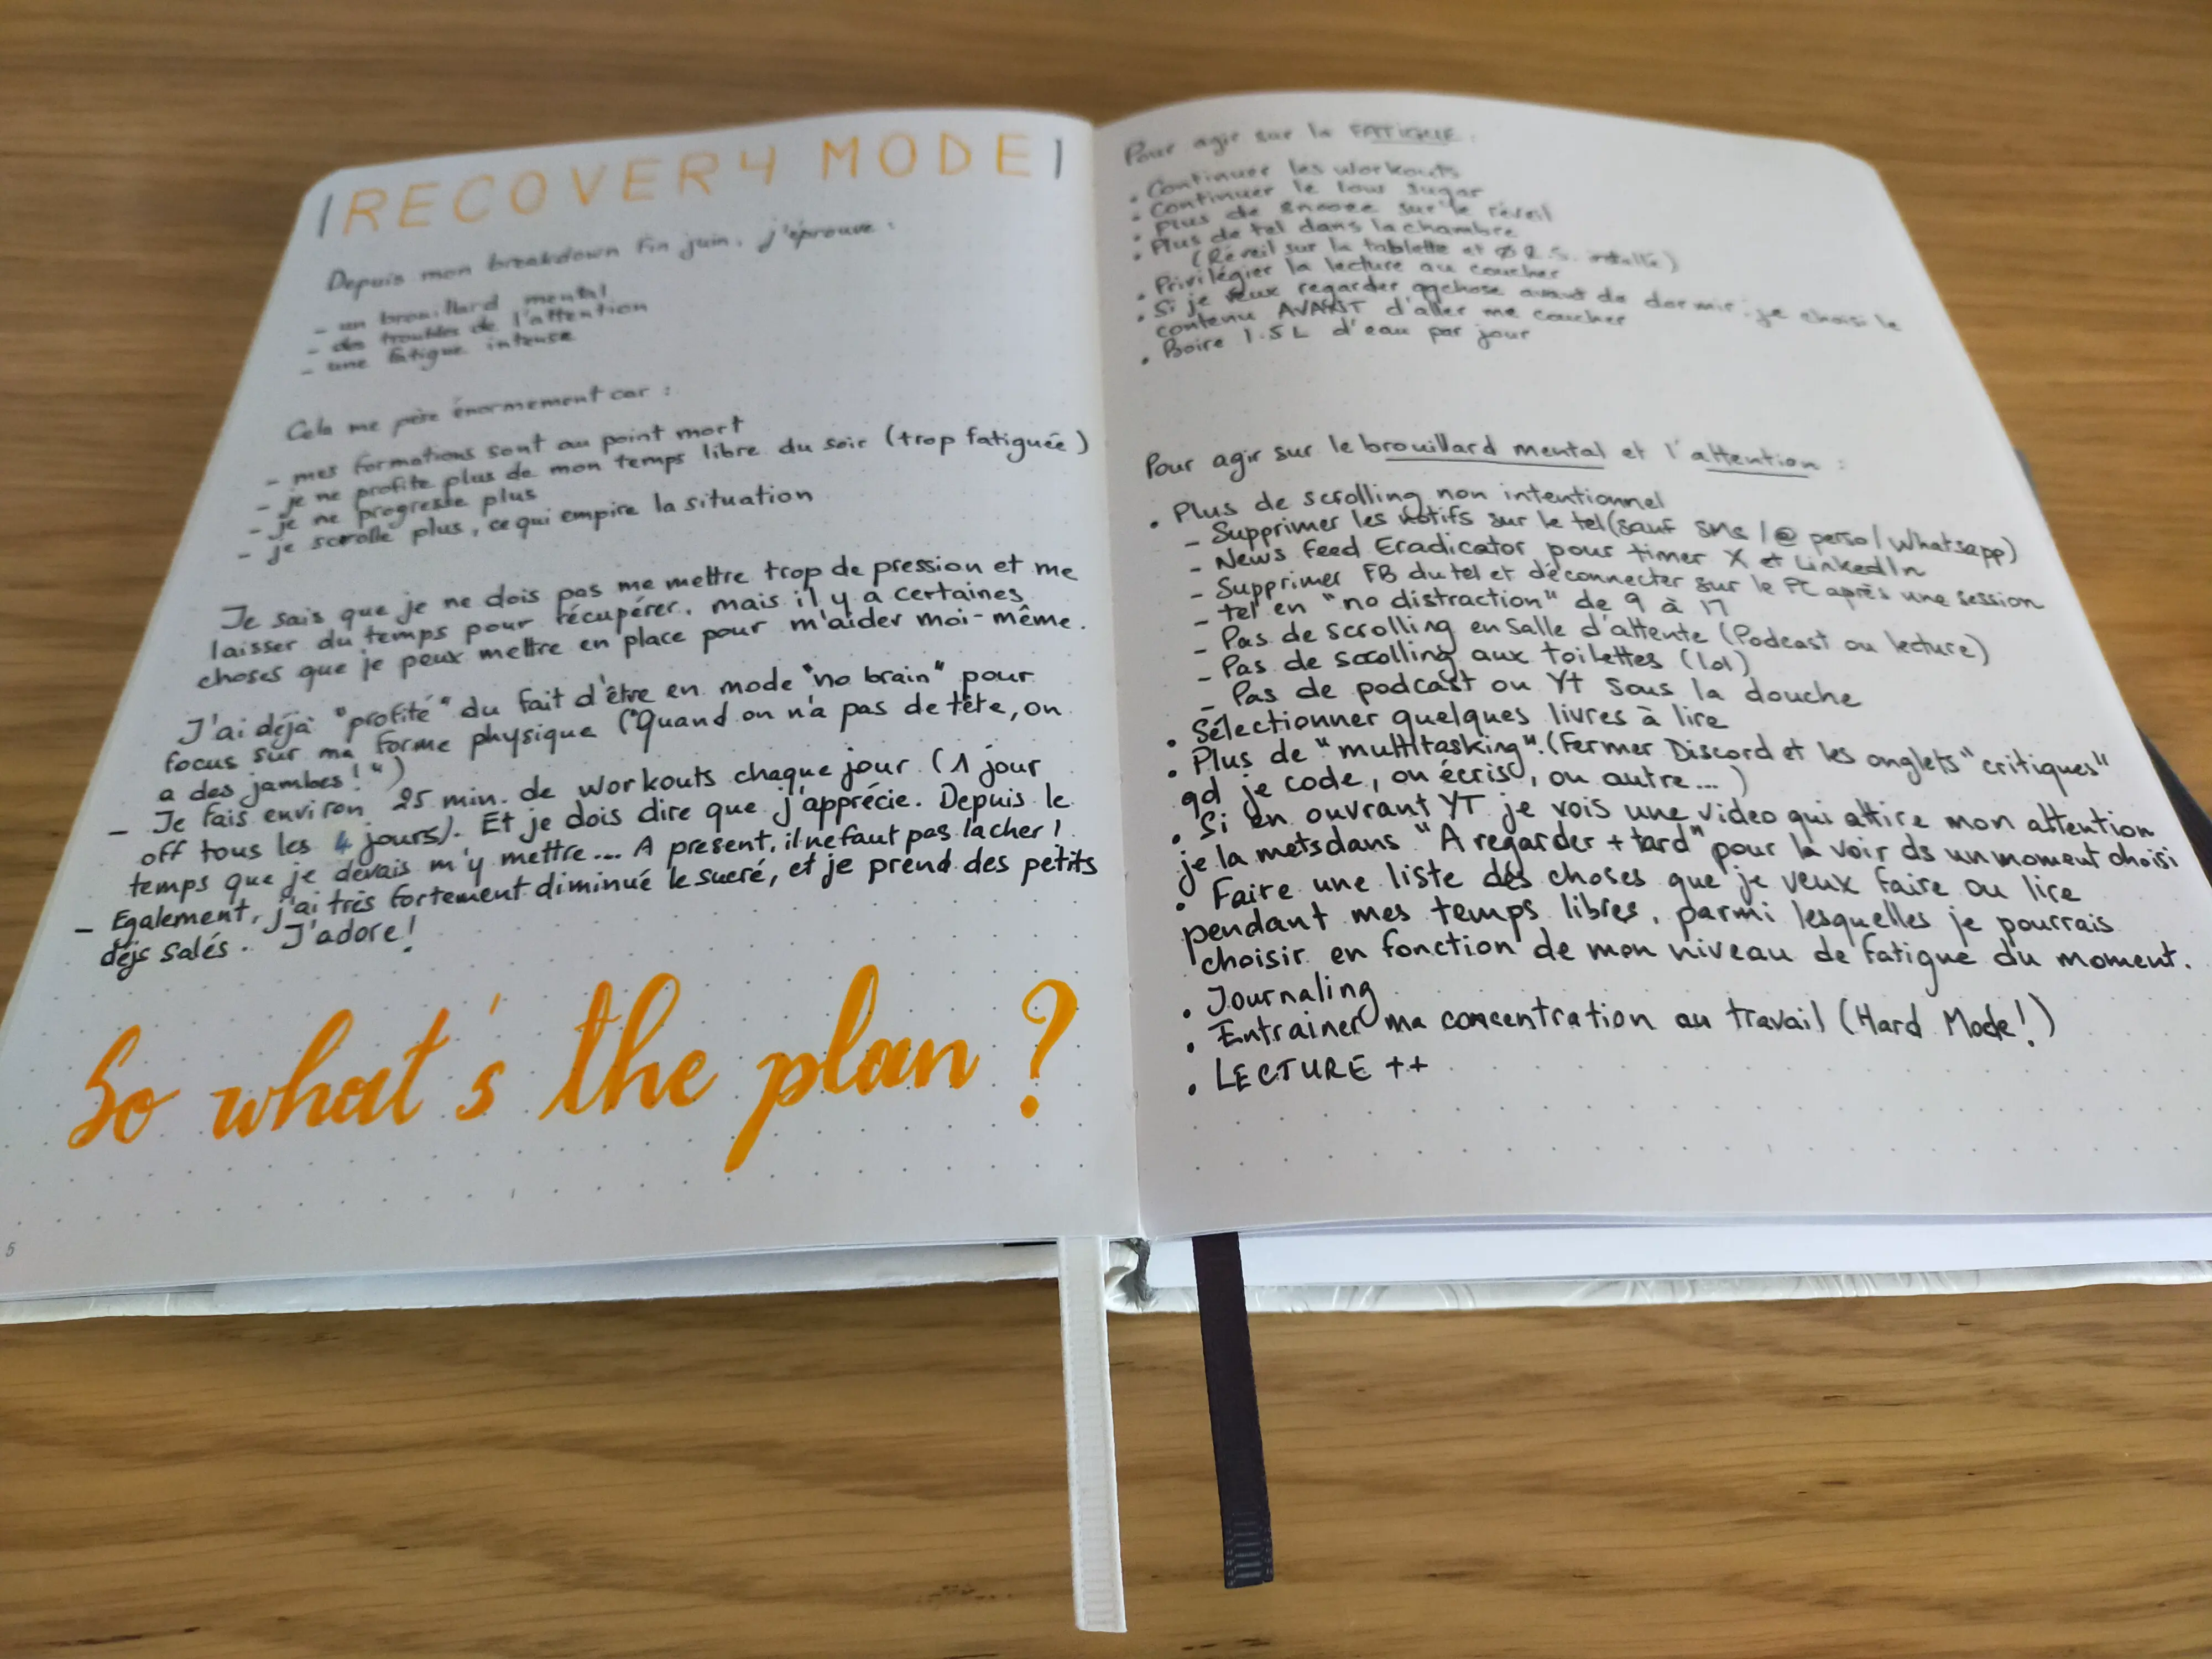 |RECOVERY MODE|
Depuis mon breakdown fin juin, j'éprouve :
- un brouillard mental
- des troubles de l'attention
- une fatigue intense
Cela me pèse énormement car :
- mes formations sont au point mort
- je ne profite plus de mon temps libre du soir (trop fatiguée)
- je ne progresse plus
- je scrolle plus, ce qui empire la situation
Je sais que je ne dois pas me mettre trop de pression et me
laisser du temps pour récupérer, mais il y a certaines
choses que je peux mettre en place pour m'aider moi-même.
J'ai déjà "profité" du fait d'être en mode "no brain" pour
focus sur ma forme physique ("Quand on n'a pas de tête, on
a des jambes!")
- Je fais environ 25 min. de workouts chaque jour (1 jour
off tous les 4 jours). Et je dois dire que j'apprécie. Depuis le
temps que je devais m'y mettre... A present, il ne faut pas lacher!
- Egalement, j'ai très fortement diminué le sucré, et je prend des petits
déjs salés. J'adore!
So what's the plan ?
5
Pour agir sur la FATIGUE :
• Continuer les workouts
• Continuer le low sugar
• Plus de snooze sur le réveil
• Plus de tel dans la chambre
(Réveil sur la tablette et Ø R.S.
• Privilégier la lecture au coucher
• Si je veux regarder qqchose avant de dormir, je choisi le
contenu AVANT d'aller me coucher
• Boire 1.5L d'eau par jour
Pour agir sur le brouillard mental et l'attention :
• Plus de scrolling non intentionnel
- Supprimer les notifs sur le tel (sauf SMS / @ perso / Whatsapp)
- News Feed Eradicator pour timer X et LinkedIn
- Supprimer FB du tel et déconnecter sur le PC après une session
- tel en "no distraction" de 9 à 17
- Pas de scrolling en salle d'attente (Podcast ou lecture)
- Pas de scrolling aux toilettes (lol)
- Pas de podcast ou YT sous la douche
• Sélectionner quelques livres à lire
• Plus de "multitasking". (Fermer Discord et les onglets "critiques"
qd je code, ou écris, ou autre...)
• Si en ouvrant YT je vois une video qui attire mon attention
je la mets dans "A regarder + tard" pour la voir ds un moment choisi
• Faire une liste des choses que je veux faire ou lire
pendant mes temps libres, parmi lesquelles je pourrais
choisir en fonction de mon niveau de fatigue du moment.
• Journaling
• Entrainer ma concentration au travail (Hard Mode!)
• LECTURE ++